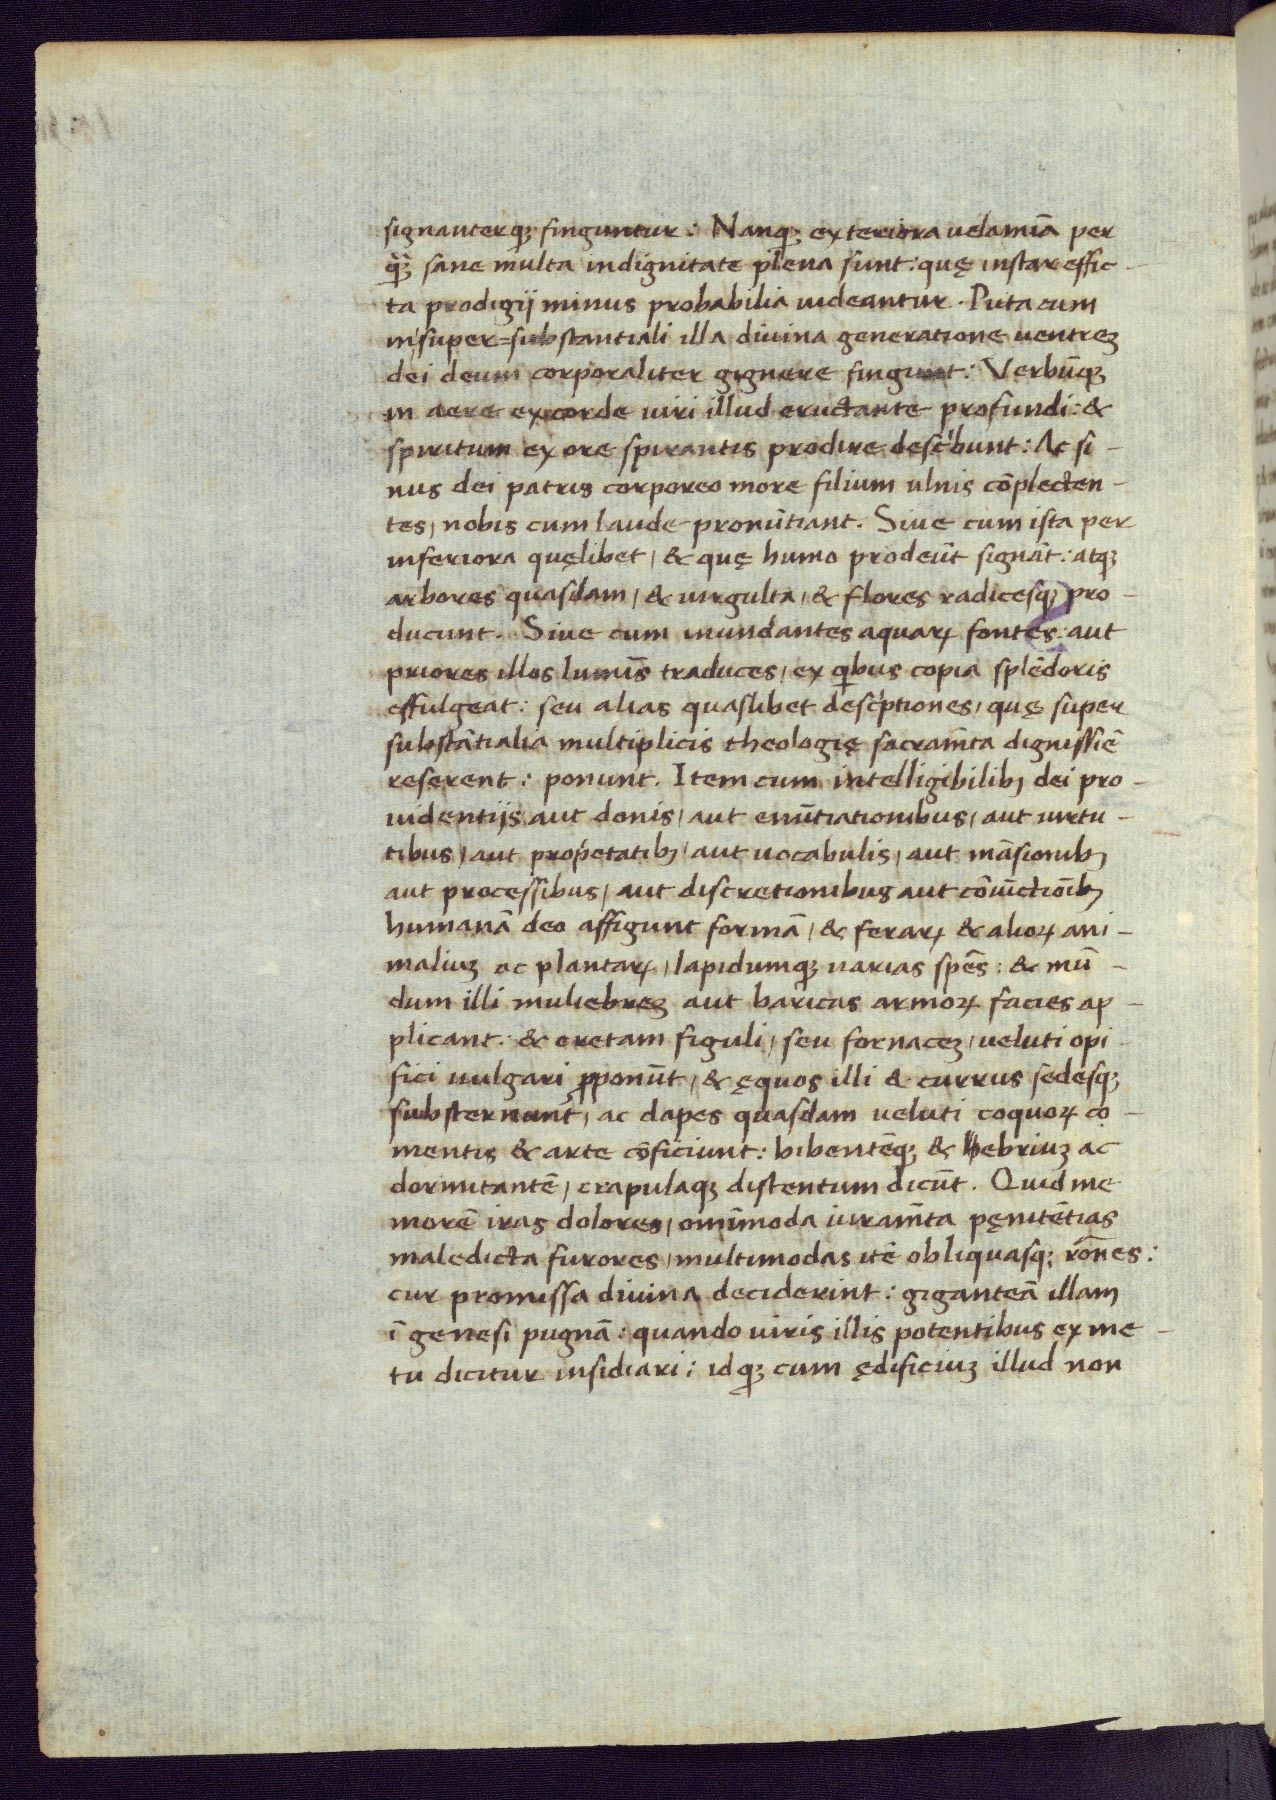 signanterq; finguntur: Nanq; exteriora uelamīa per
q̃; sane multa indignitate plena sunt: quę instar effic-
ta prodigij minus probabilia uideantur. Puta cum
in super=substantiali illa diuina generatione uentreʒ
dei deum corporaliter gignere fingunt: Verbūq;
in aere ex corde uiri illud eructante profundi: &
spiritum ex ore spirantis prodire descͥbunt: Ac si-
nus dei patris corporeo more filium ulnis cōplecten-
tes, nobis cum laude pronūtiant. Siue cum ista per
inferiora quęlibet, & quę humo prodeūt signāt: atq;
arbores quasdam, & uirgulta, & flores radicesq; pro-
ducunt. Siue cum inundantes aquaꝝ fontes: aut
priores illos lumīs traduces, ex qͥbus copia splēdoris
effulgeat: seu alias quaslibet descͥptiones, quę super
substātialia multiplicis theologię sacram̄ta dignissiē
reserent: ponunt. Item cum intelligibilibꝫ dei pro-
uidentijs aut donis, aut enūtiationibus, aut uirtu-
tibus, aut propͥetatibꝫ, aut uocabulis, aut māsionibꝫ
aut processibus, aut discretionibus aut cōiūctiōibꝫ
humanā deo affigunt formā, & feraꝝ & alioꝝ ani-
maliuʒ ac plantaꝝ, lapidumq; uarias spēs: & mū-
dum illi muliebreʒ aut barͥcas armoꝝ facies ap-
plicant: & cretam figuli, seu fornaceʒ, ueluti opi-
fici uulgari ꝓponūt, & ęquos illi & currus sedesq;
substernunt, ac dapes quasdam ueluti coquoꝝ co-
mentis & arte cōficiunt: bibentēq; & hebriuʒ ac
dormitantē, crapulaq; distentum dicūt. Quid me
morē iras dolores, omīmoda iuram̄ta pęnitētias
maledicta furores, multimodas itē obliquasq; rōnes:
cur promissa diuina deciderint: giganteā illam
ī genesi pugnā: quando uiris illis potentibus ex me-
tu dicitur insidiari: idq; cum ędificiuʒ illud non